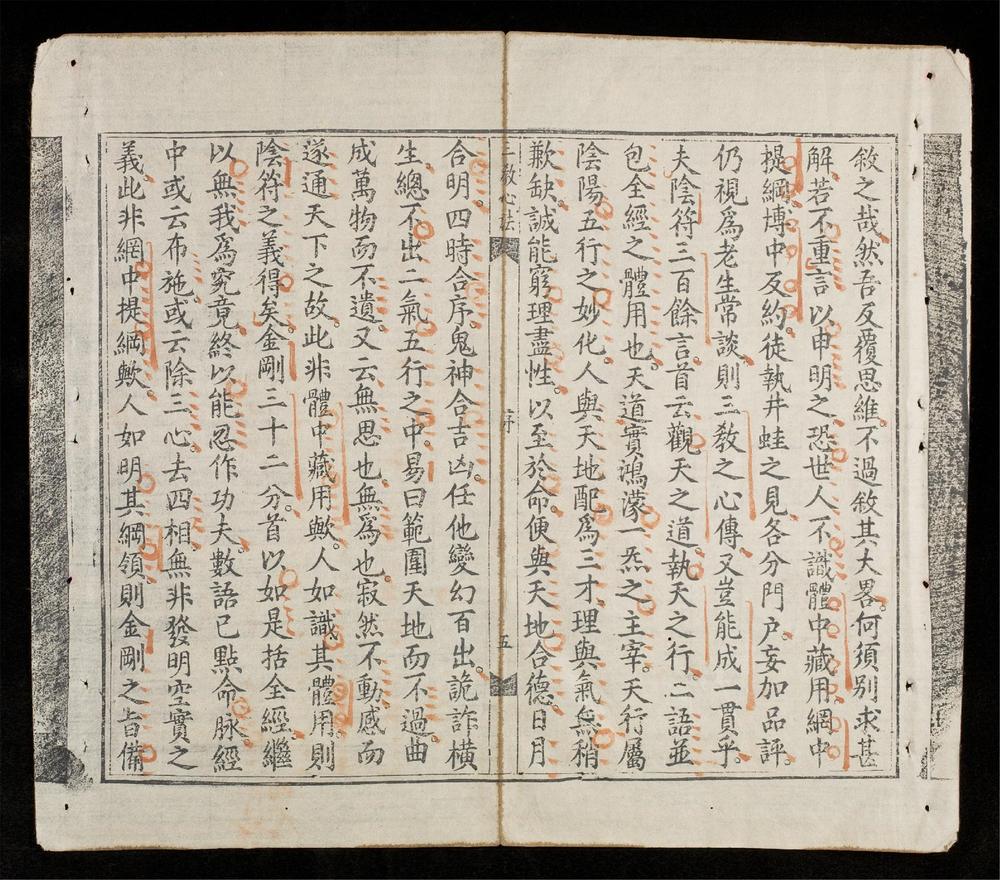 敘之哉然吾反覆思維不過敘其大畧何須別求甚
解若不重言以申明之恐世人不識體中藏用綱中
提綱博中反約徒執井蛙之見各分門户妄加品評
仍視爲老生常談則三敎之心傳又豈能成一貫乎
夫陰符三百餘言首云觀天之道執天之行二語並
包全經之體用也天道實鴻濛一炁之主宰天行屬
陰陽五行之妙化人與天地配爲三才理與氣無稍
歉缺誠能窮理盡性以至於命便與天地合德日月
三敎心法 序 五
合明四時合序鬼神合吉凶任他變幻百出詭詐横
生總不出二氣五行之中易曰範圍天地而不過曲
成萬物而不遺又云無思也無爲也寂然不動感而
遂通天下之故此非體中藏用歟人如識其體用則
陰符之義得矣金剛三十二分首以如是括全經繼
以無我爲究竟終以能忍作功夫數語已點命脉經
中或云布施或云除三心去四相無非發明空實之
義此非網中提綱歟人如明其綱領則金剛之旨備